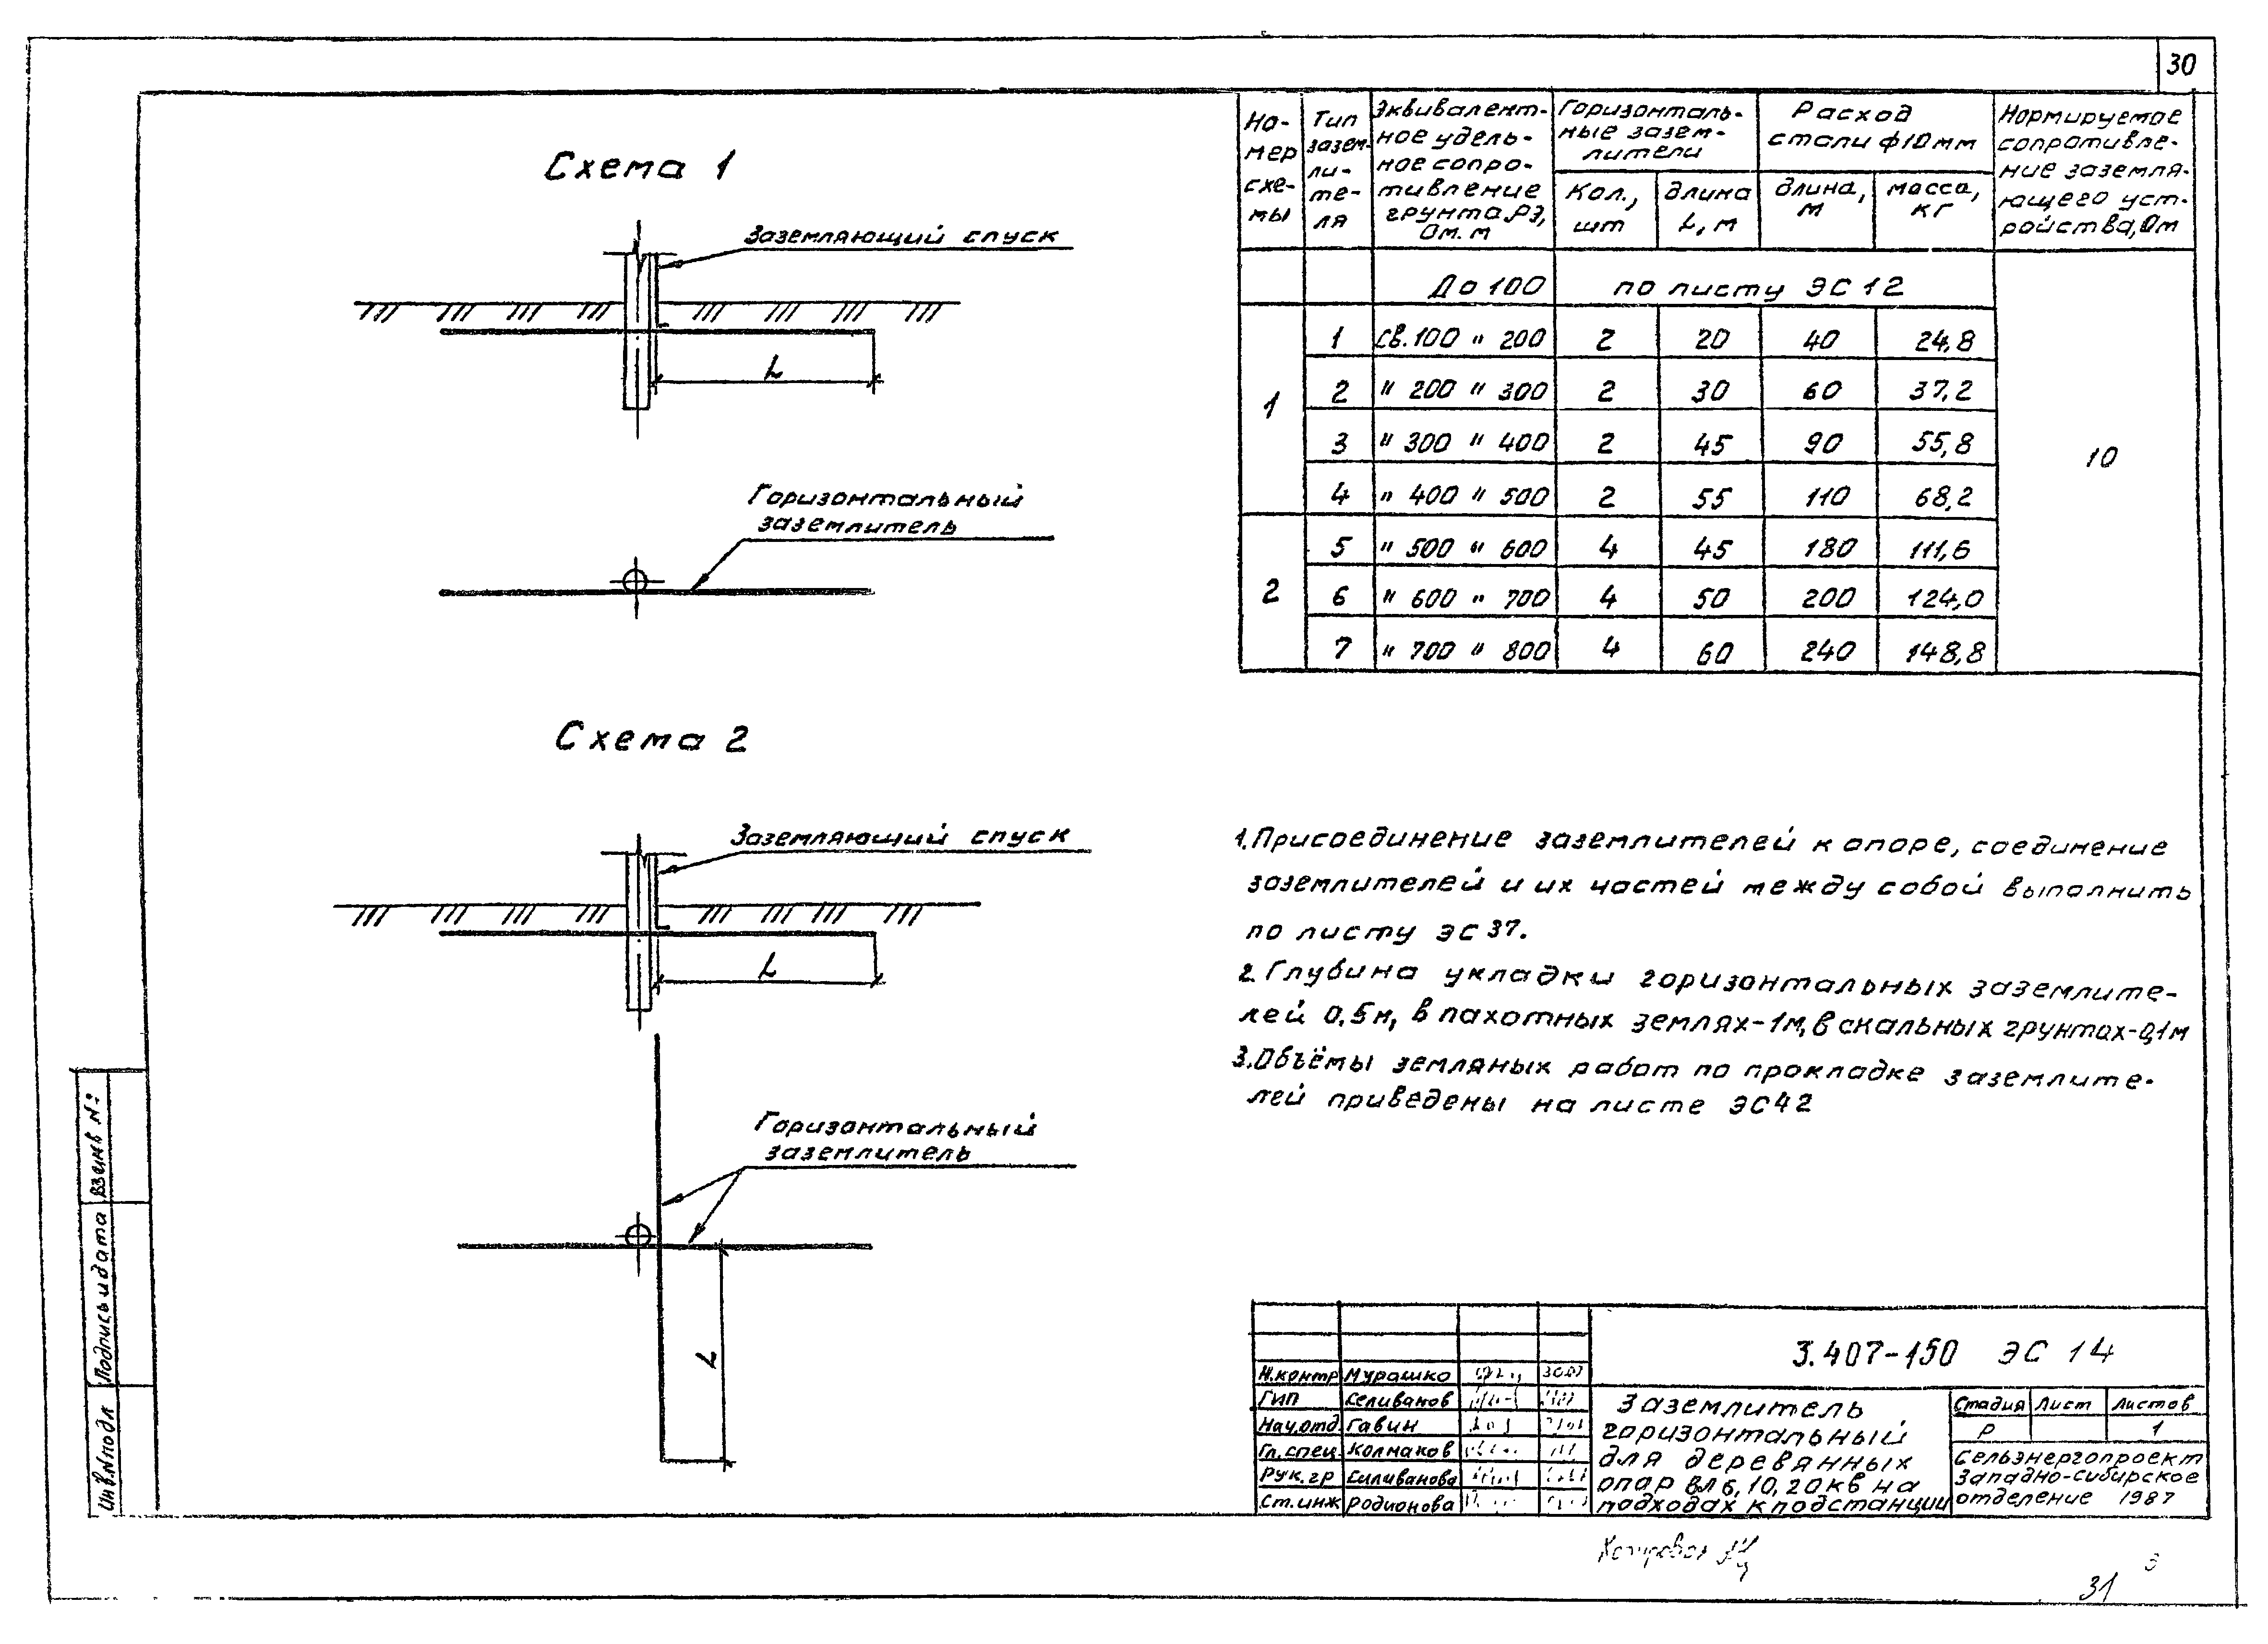 30
Схема 1
Заземляющий спуск
L
Горизонтальный
заземлитель
Схема 2
Заземляющий спуск
L
Горизонтальный
заземлитель
L
Но-
мер
схе-
мы
Тип
зазем-
ли-
те-
ля
Эквивалент-
ное удель-
ное сопро-
тивление
грунта, ρэ,
Ом.м
Горизонталь-
ные зазем-
лители
Кол.,
шт
Длина
L, м
Расход
стали ф10мм
Длина,
м
масса,
кг
Нормируемое
сопротивле-
ние заземля-
ющего уст-
ройства, Ом
До 100 по листу ЭС12
1 1 св.100 " 200 2 20 40 24,8
2 " 200 " 300 2 30 60 37,2
3 " 300 " 400 2 45 90 55,8
4 " 400 " 500 2 55 110 68,2
2 5 " 500 " 600 4 45 180 111,6
6 " 600 " 700 4 50 200 124,0
7 " 700 " 800 4 60 240 148,8
10
1. Присоединение заземлителей к опоре, соединение
заземлителей и их частей между собой выполнить
по листу ЭС 37.
2. Глубина укладки горизонтальных заземлите-
лей 0,5м, в пахотных землях-1м, в скальных грунтах-0,1м
3. Объёмы земляных работ по прокладке заземлите-
лей приведены на листе ЭС42
Взам. инв №
Подпись и дата
Инв.№подл
3.407-150 ЭС 14
Н.контр Мурашко
ГИП Селиванов
Нач.отд Гавин
Гл.спец. Колмаков
Рук.гр Силиванова
Ст.инж Родионова
Заземлитель
горизонтальный
для деревянных
опор ВЛ 6, 10, 20кВ на
подходах к подстанции
Стадия Лист Листов
Р 1
Сельэнергопроект
Западно-сибирское
отделение 1987
Копировал
31